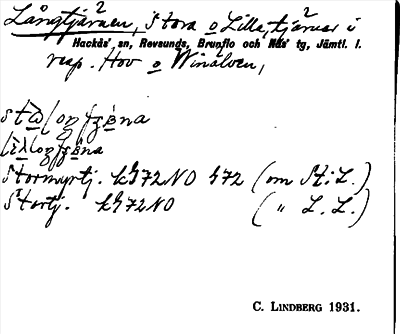 Långtjärnen, Stora o Lilla, tjärnar i
Hackås' sn, Revsunds, Brunflo och Näs' tg, Jämtl. l.
resp. Hov o Winälven,
Stormyrtj. kh72NO h72 (om St. L.)
Stortj. kh72NO (" L. L.)
C. LINDBERG 1931.